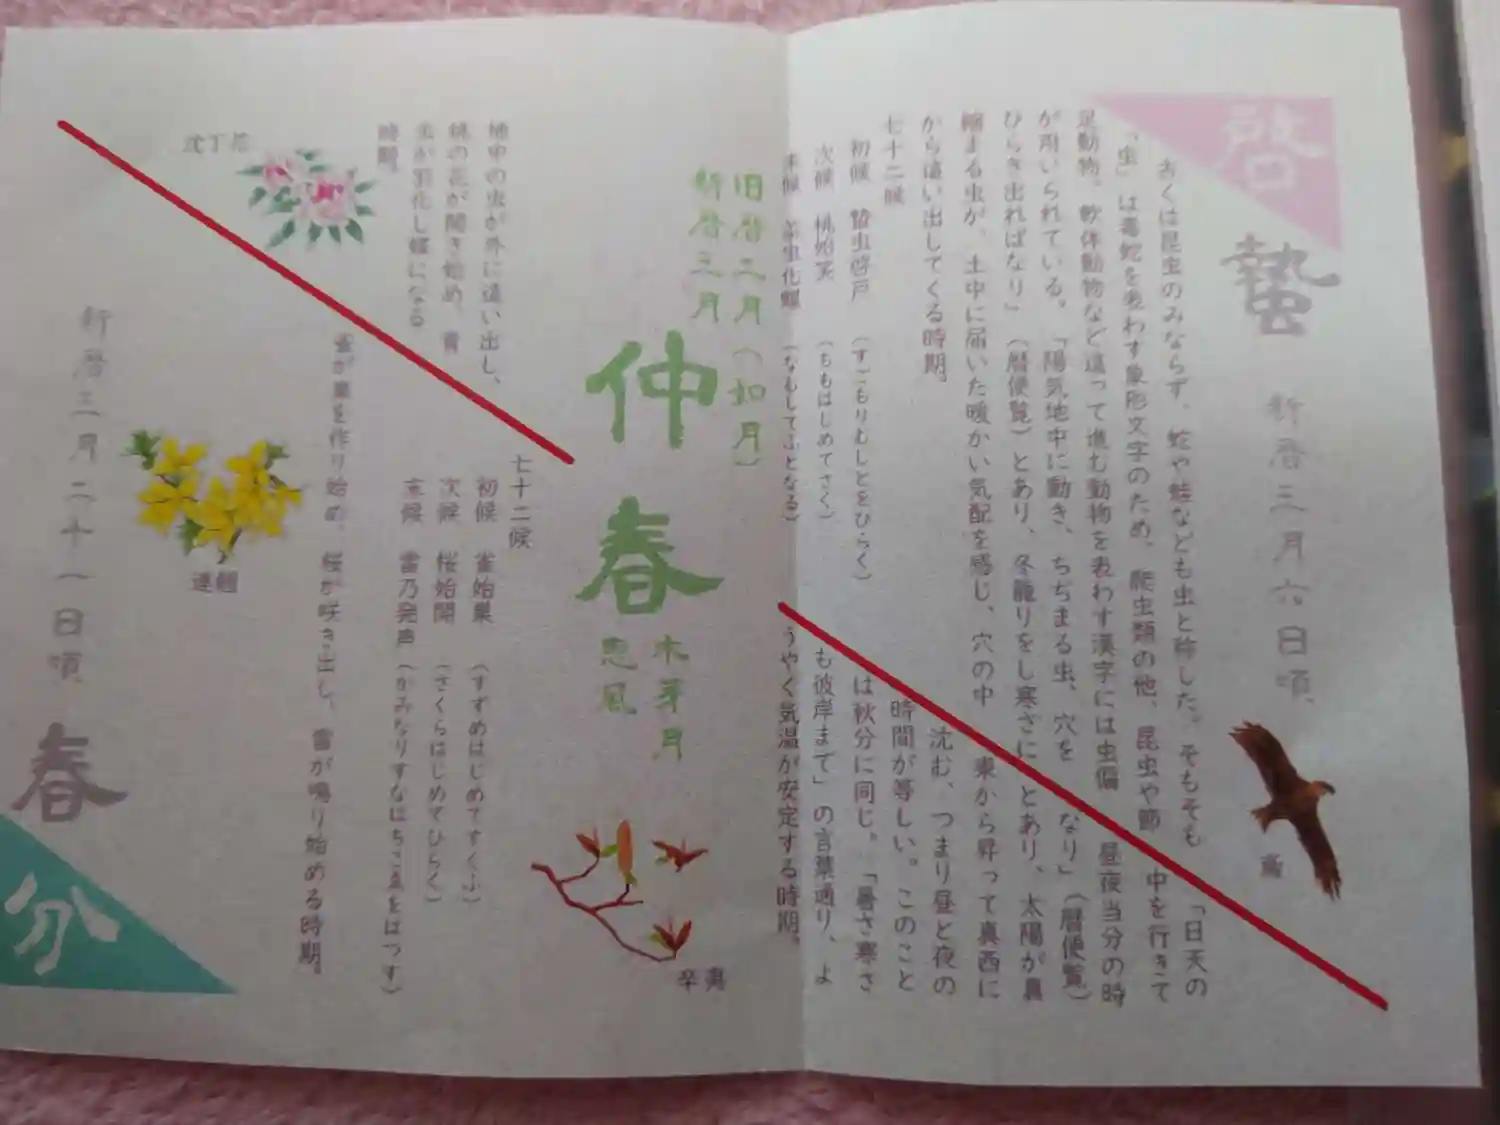 啓蟄 新暦三月六日頃
古くは昆虫のみならず、蛇や蛙なども虫と称した。そもそも
「虫」は毒蛇を表わす象形文字のため、爬虫類の他、昆虫や節
足動物、軟体動物など這って進む動物を表わす漢字には虫偏
が用いられている。「陽気地中に動き、ちぢまる虫、穴を
ひらき出ればなり」(暦便覧)とあり、冬籠りをし寒さに
縮まる虫が、土中に届いた暖かい気配を感じ、穴の中
から這い出してくる時期。
七十二候
初候 蟄虫啓戸 (すごもりむしとをひらく)
次候 桃始笑 (ももはじめてさく)
末候 菜虫化蝶 (なむしてふとなる)
鳶
旧暦二月(如月)
新暦三月
仲春
木芽月
恵風
辛夷
樋中の虫が外に這い出し、
桃の花が開き始め、青
虫が羽化し蝶になる
時期。
沈丁花
春分
新暦三月二十一日頃
「日天の
中を行きて
昼夜当分の時
なり」(暦便覧)
とあり、太陽が真
東から昇って真西に
沈む、つまり昼と夜の
時間が等しい。このこと
は秋分に同じ。「暑さ寒さ
も彼岸まで」の言葉通り、よ
うやく気温が安定する時期。
七十二候
初候 雀始巣 (すずめはじめてすくふ)
次候 桜始開 (さくらはじめてひらく)
末候 雷乃発声 (かみなりすなはちこゑをはつす)
雀が巣を作り始め、桜が咲き出し、雷が鳴り始める時期。
連翹